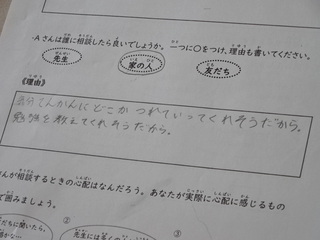 ・Aさんは誰に相談したら良いでしょうか。一つに○をつけ、理由も書いてください。
先生
家の人
友だち
《理由》
気分てんかんにどこかつれていってくれそうだから。
勉強を教えてくれそうだから。
んが相談するときの心配はなんだろう。あなたが実際に心配に感じるもの
で囲みましょう。
②
③
だちに聞いたら、